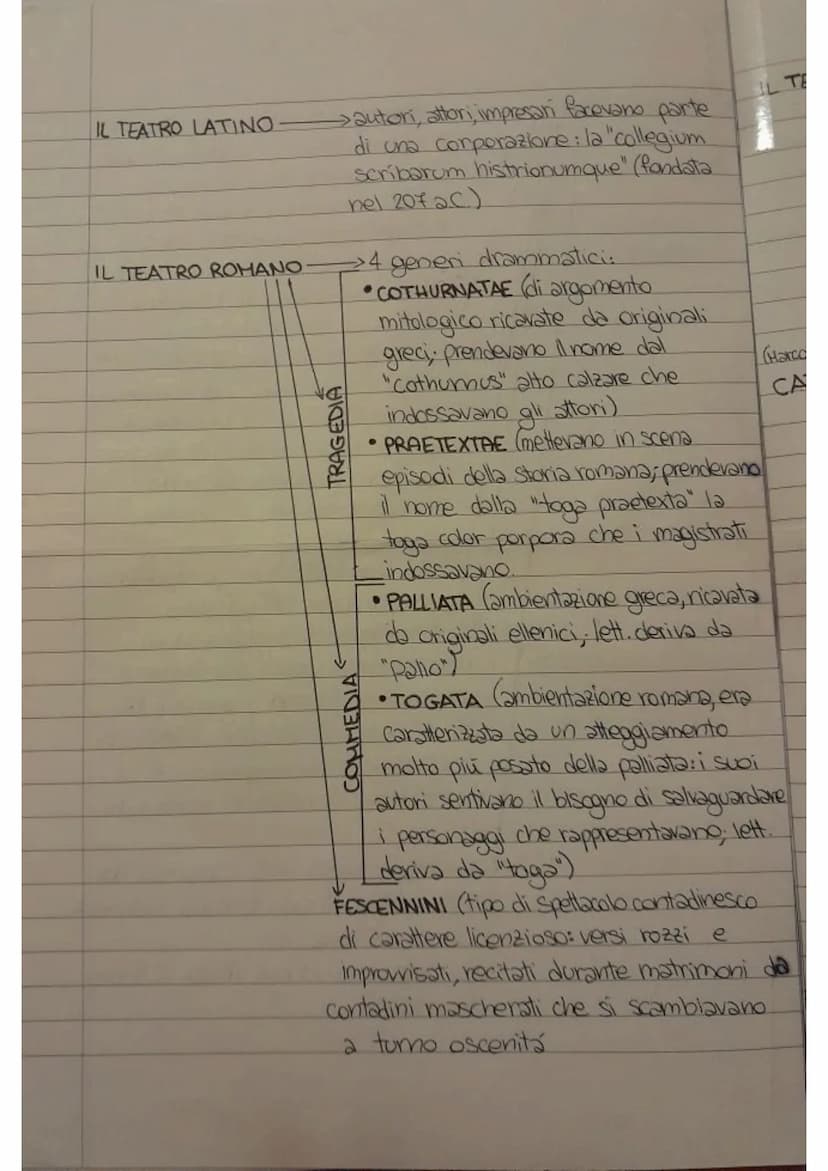 IL TE
IL TEATRO LATINO → autori, attori, impresari facevano parte
di una corporazione: la "collegium
scribarum histrionumque" (fondata
nel 207 a.C.)
IL TEATRO ROMANO → 4 generi drammatici:
• COTHURNATAE (di argomento
mitologico ricavate da originali
greci; prendevano il nome dal
"cothurnus" alto calzare che
indossavano gli attori)
TRAGEDIA
• PRAETEXTAE (mettevano in scena
episodi della storia romana; prendevano
il nome dalla "toga praetexta" la
toga color porpora che i magistrati
indossavano.
• PALLIATA (ambientazione greca, ricavata
da originali ellenici; lett. deriva da
"pallio")
COMMEDIA
• TOGATA (ambientazione romana, era
caratterizzata da un atteggiamento
molto piú posato della palliata: i suoi
autori sentivano il bisogno di salvaguardare
i personaggi che rappresentavano; lett.
deriva da "toga")
FESCENNINI (tipo di spettacolo contadinesco
di carattere licenzioso: versi rozzi e
improvvisati, recitati durante matrimoni da
contadini mascherati che si scambiavano
a turno oscenitá
(Marco
CA